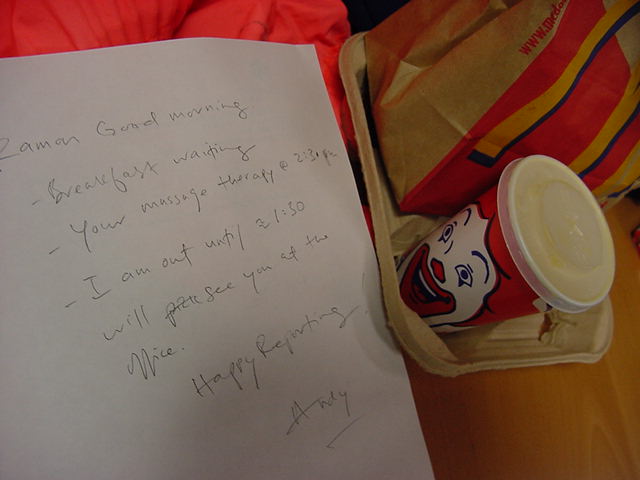 Zaman Good morning.
- Breakfast waiting
- Your massage therapy @ 2:30 pm
- I am out until ≈ 1:30
will see you at the
office.
Happy Reporting.
Andy
www.mcdo